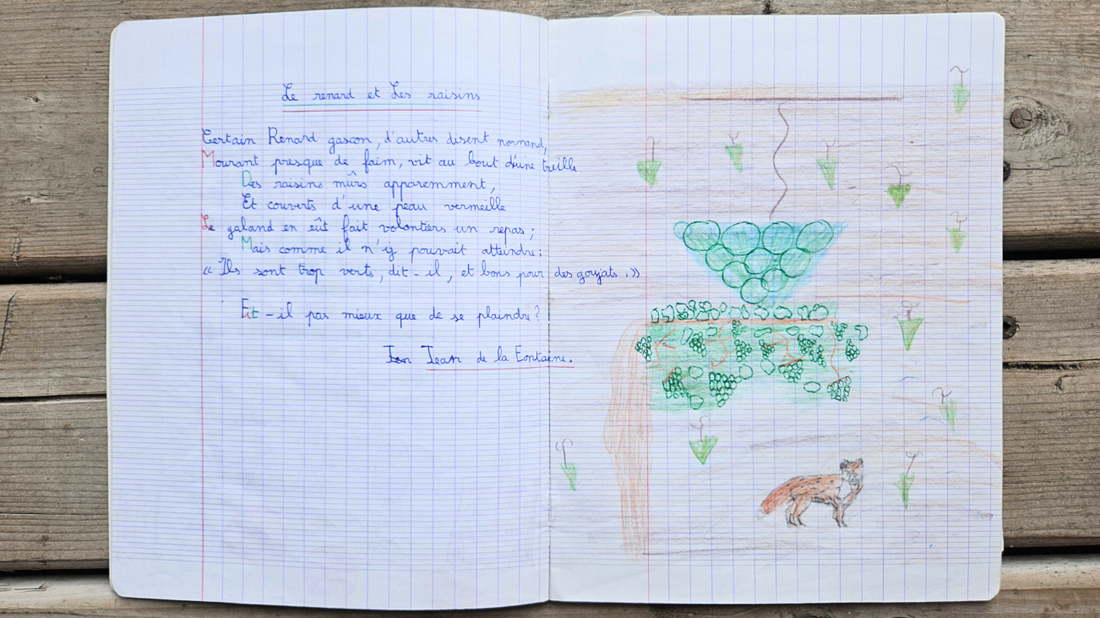 Le renard et Les raisins
Certain Renard gascon, d'autres disent normand,
Mourant presque de faim, vit au bout d'une treille
Des raisins mûrs apparemment,
Et couverts d'une peau vermeille
Le galand en eût fait volontiers un repas ;
Mais comme il n'y pouvait atteindre :
« Ils sont trop verts, dit-il, et bons pour des goujats. »
Fit-il pas mieux que de se plaindre ?
Jean de la Fontaine.